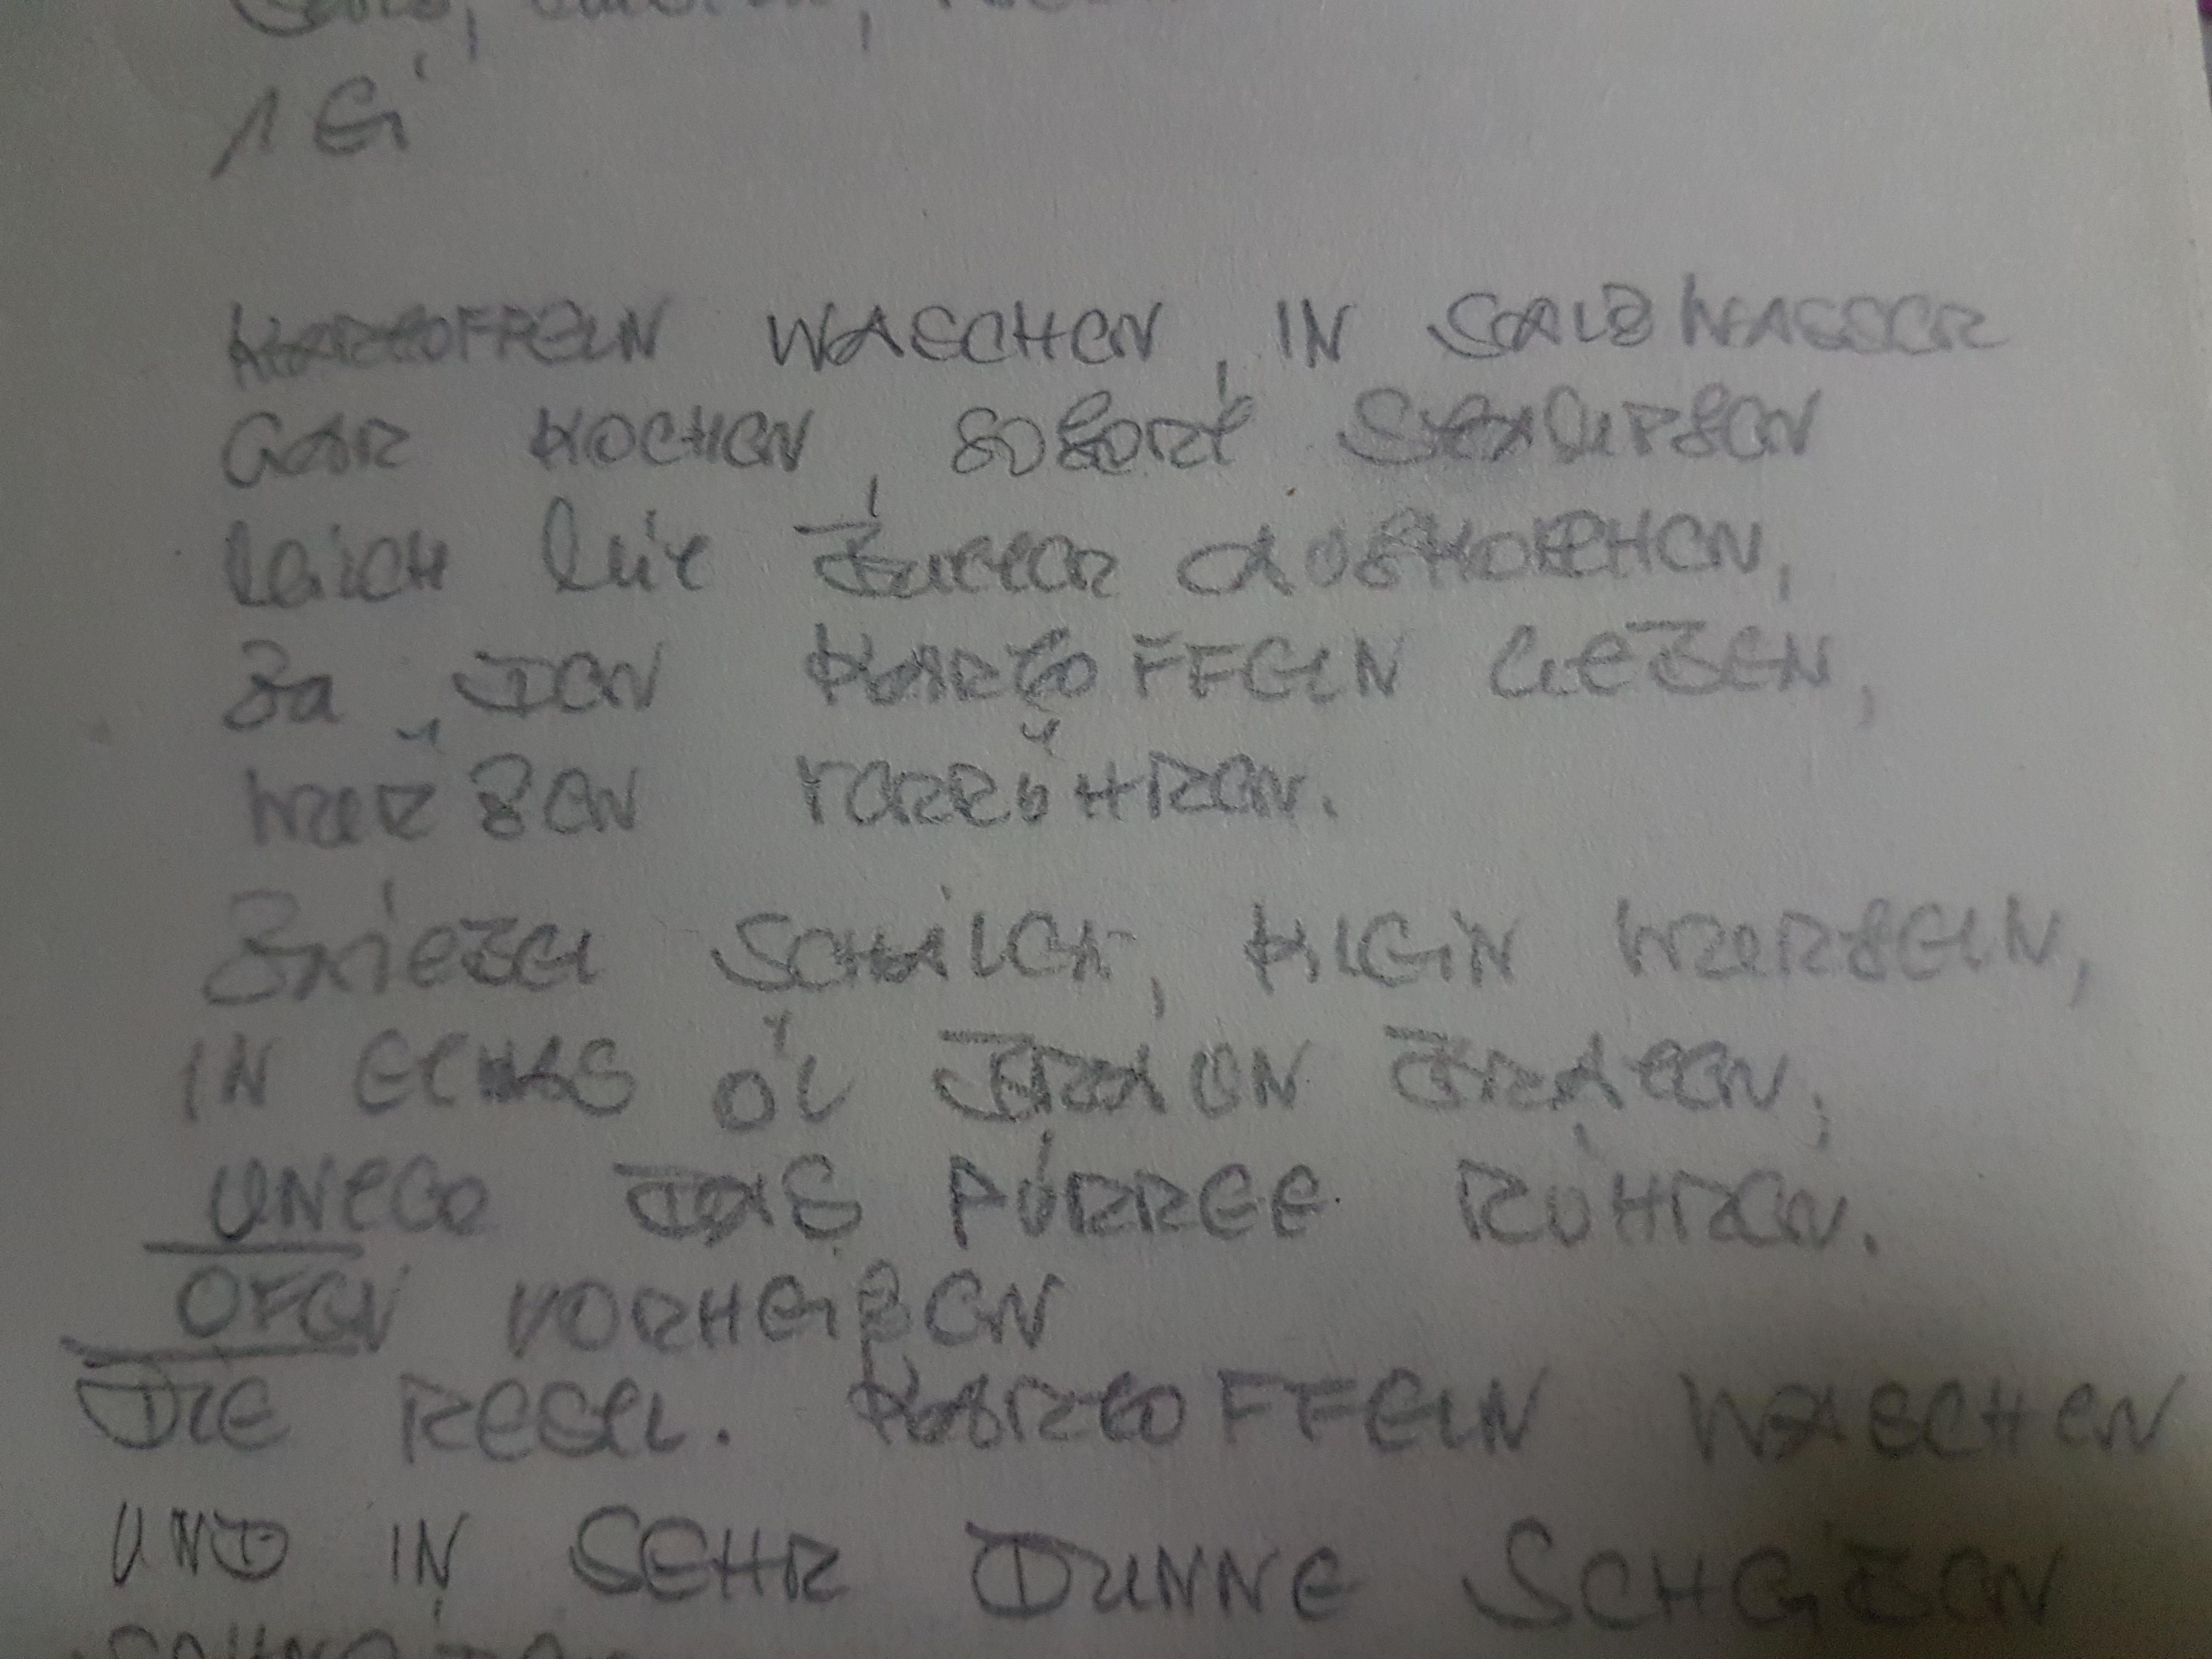 1 Ei
KARTOFFELN WASCHEN, IN SALZWASSER
GAR KOCHEN, SOFORT STAMPFEN
LAUCH MIT BUTTER AUFKOCHEN,
ZU DEN KARTOFFELN GEBEN,
WÜRZEN VERRÜHREN.
ZWIEBEL SCHÄLEN, KLEIN WÜRFELN,
IN ETWAS ÖL BRAUN BRATEN,
UNTER DAS PÜRREE RÜHREN.
OFEN VORHEIßEN
DIE RESTL. KARTOFFELN WASCHEN
UND IN SEHR DUNNE SCHEIBEN